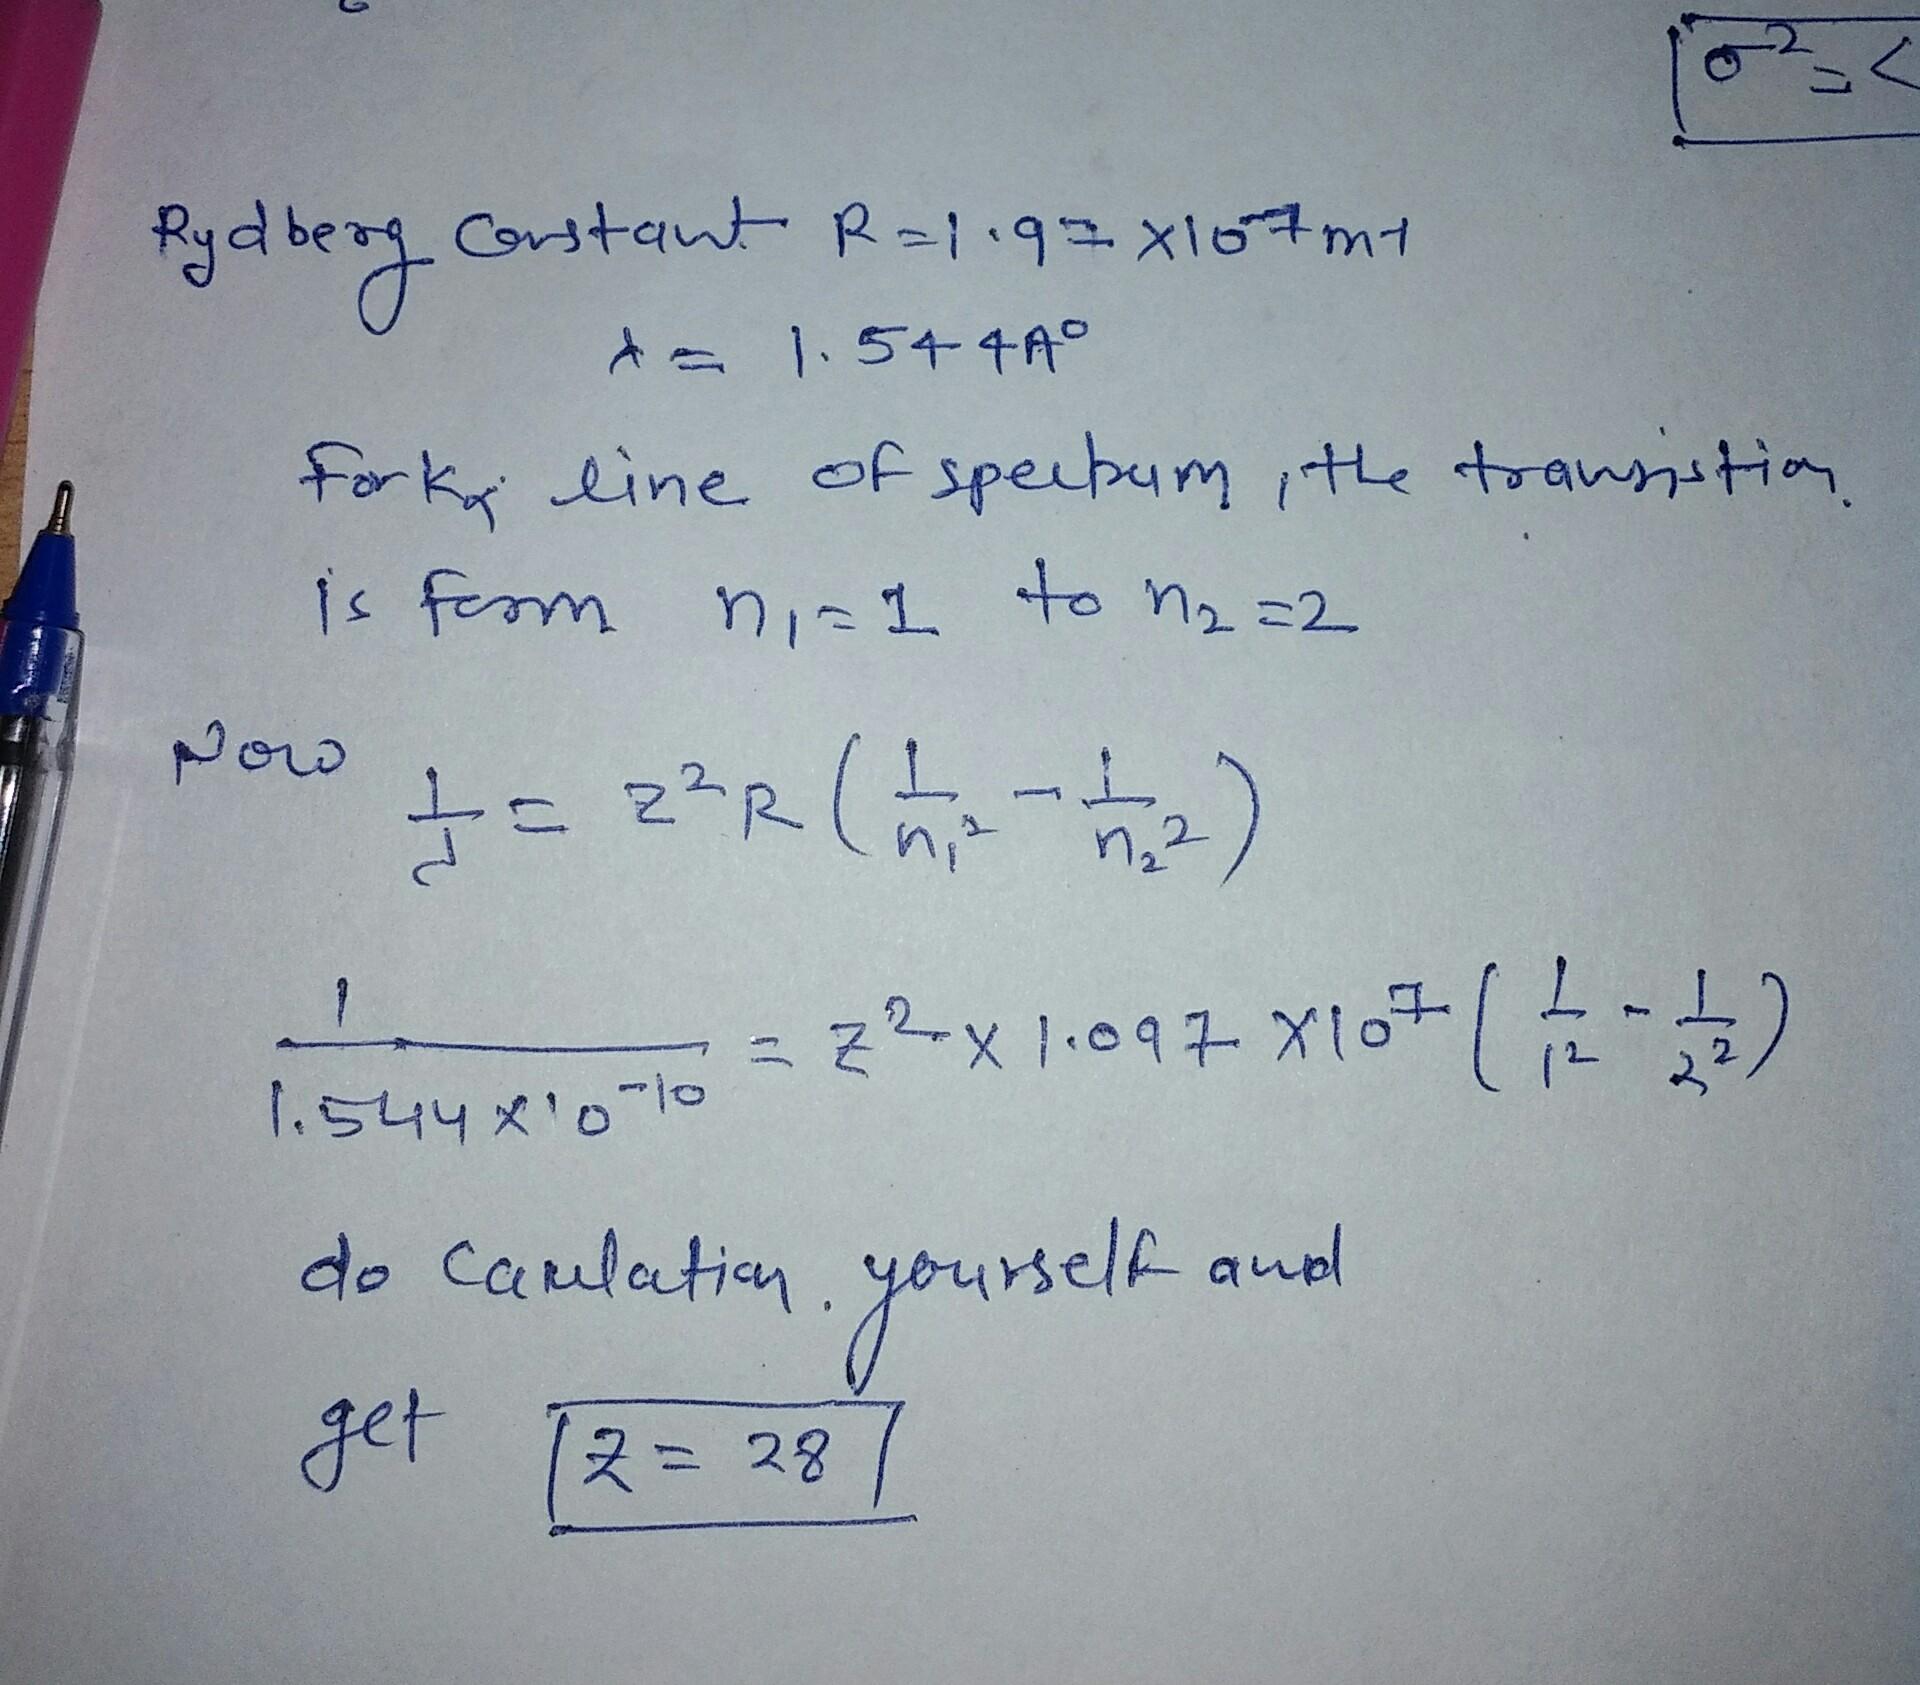 σ² = <
Rydberg Constant R = 1.97 × 10⁷ m-1
λ = 1.544 A°
For Kα line of spectrum, the transistion
is form n₁ = 1 to n₂ = 2
Now 1/λ = Z²R (1/n₁² - 1/n₂²)
1/1.544 × 10⁻¹⁰ = Z² × 1.097 × 10⁷ (1/1² - 1/2²)
do Caculation yourself and
get Z = 28